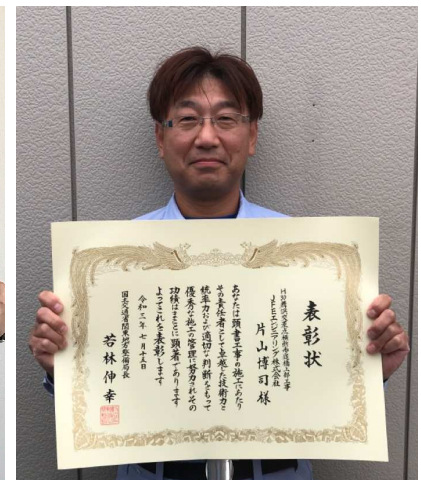 表彰状
JFEエンジニアリング株式会社
片山博司様
あなたは頭書工事の施工にあたり
その責任者として卓越した技術力と
統率力および適切な判断をもって
優秀な施工の管理に努力されその
功績はまことに顕著であります
よってこれを表彰します
令和三年七月十三日
国土交通省関東地方整備局長
若林伸幸